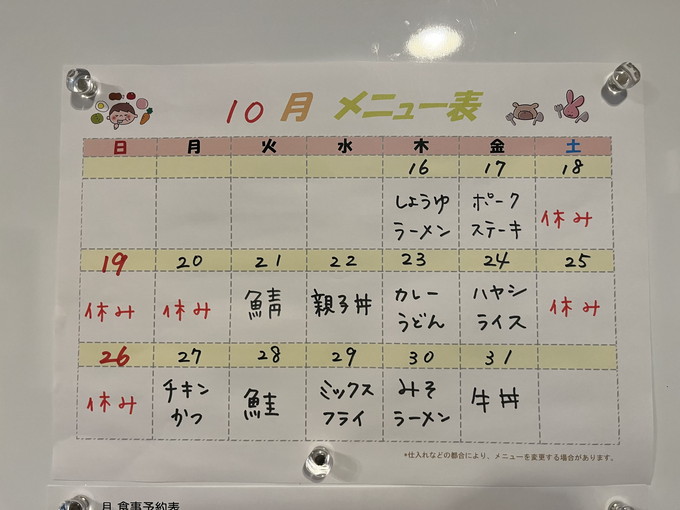 10月 メニュー表
日 月 火 水 木 金 土
16 17 18
しょうゆ ポーク
ラーメン ステーキ 休み
19 20 21 22 23 24 25
休み 休み 鯖 親子丼 カレー ハヤシ 休み
うどん ライス
26 27 28 29 30 31
休み チキン 鮭 ミックス みそ 牛丼
かつ フライ ラーメン
*仕入れなどの都合により、メニューを変更する場合があります。
月 食事予約表